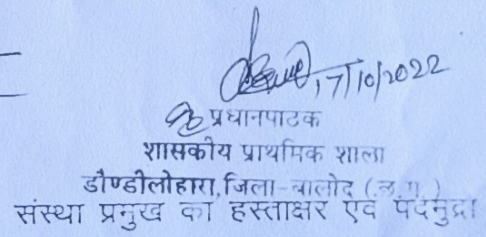 17/10/2022
प्रधानपाठक
शासकीय प्राथमिक शाला
डौण्डीलोहारा, जिला-बालोद (छ.ग.)
संस्था प्रमुख का हस्ताक्षर एवं पदमुद्रा